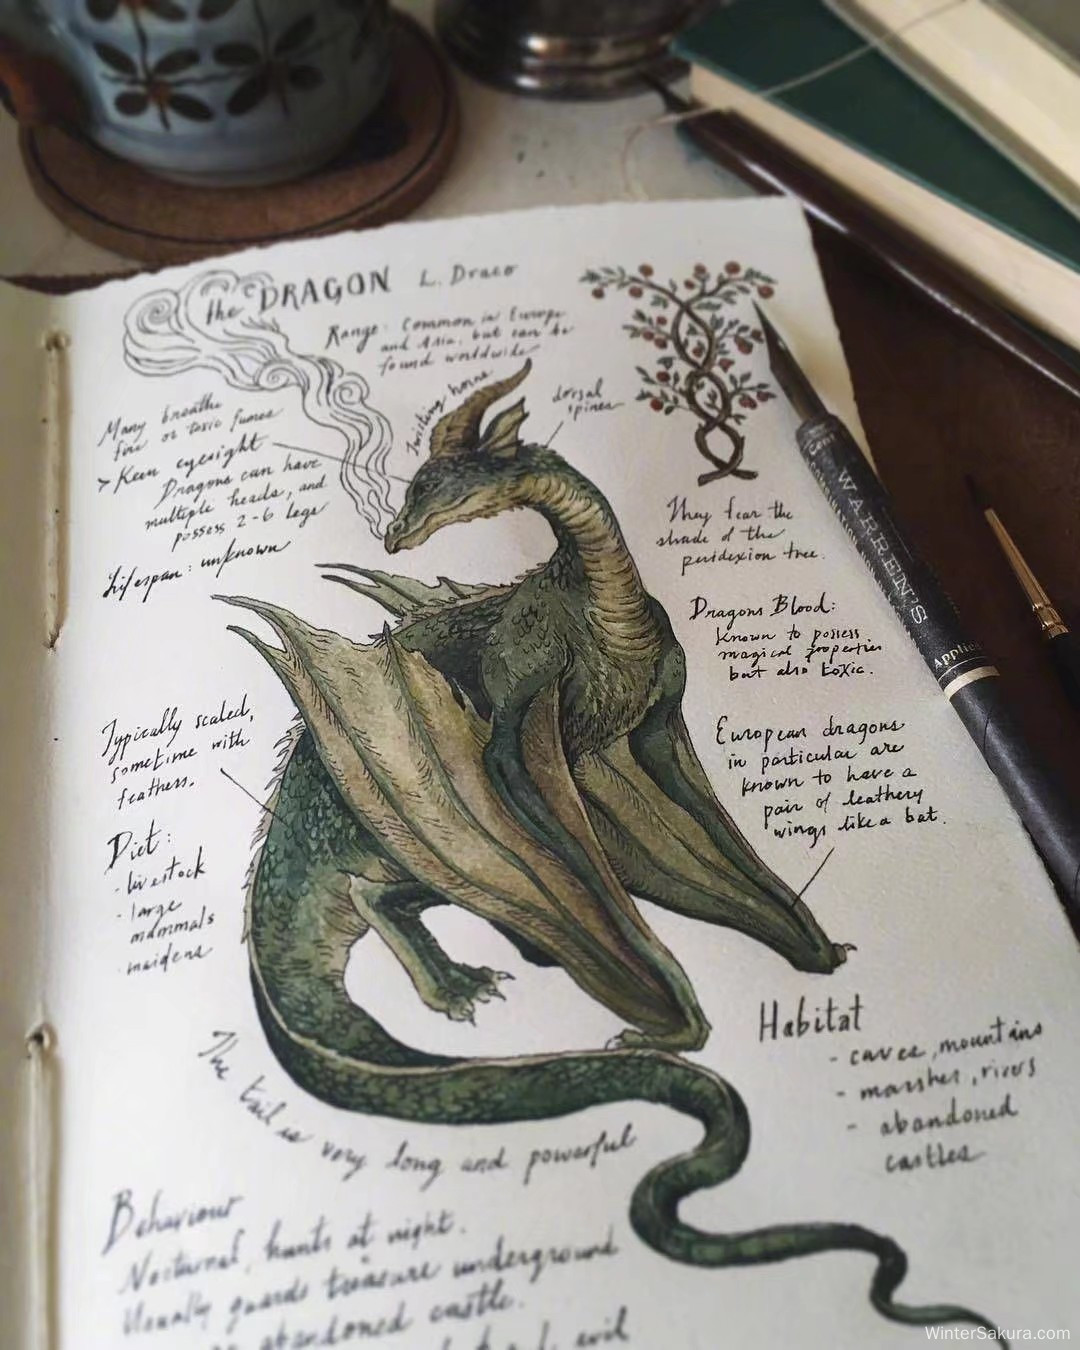 the DRAGON L. Draco
Range: Common in Europe
and Asia, but can be
found worldwide
Many breathe
fire or toxic fumes
> Keen eyesight
Dragons can have
multiple heads, and
possess 2-6 legs
Lifespan: unknown
Twisting horns
dorsal
spines
They fear the
shade of the
peridexion tree.
Dragons Blood:
Known to possess
magical properties
but also toxic.
European dragons
in particular are
known to have a
pair of leathery
wings like a bat.
Typically scaled,
sometime with
feathers.
Diet:
- livestock
- large
mammals
- maidens
Habitat
- caves, mountains
- marshes, rivers
- abandoned
castles
The tail is very long and powerful
Behaviour
Nocturnal, hunts at night.
Usually guards treasure underground
abandoned castle.
evil
WARREN'S
WinterSakura.com